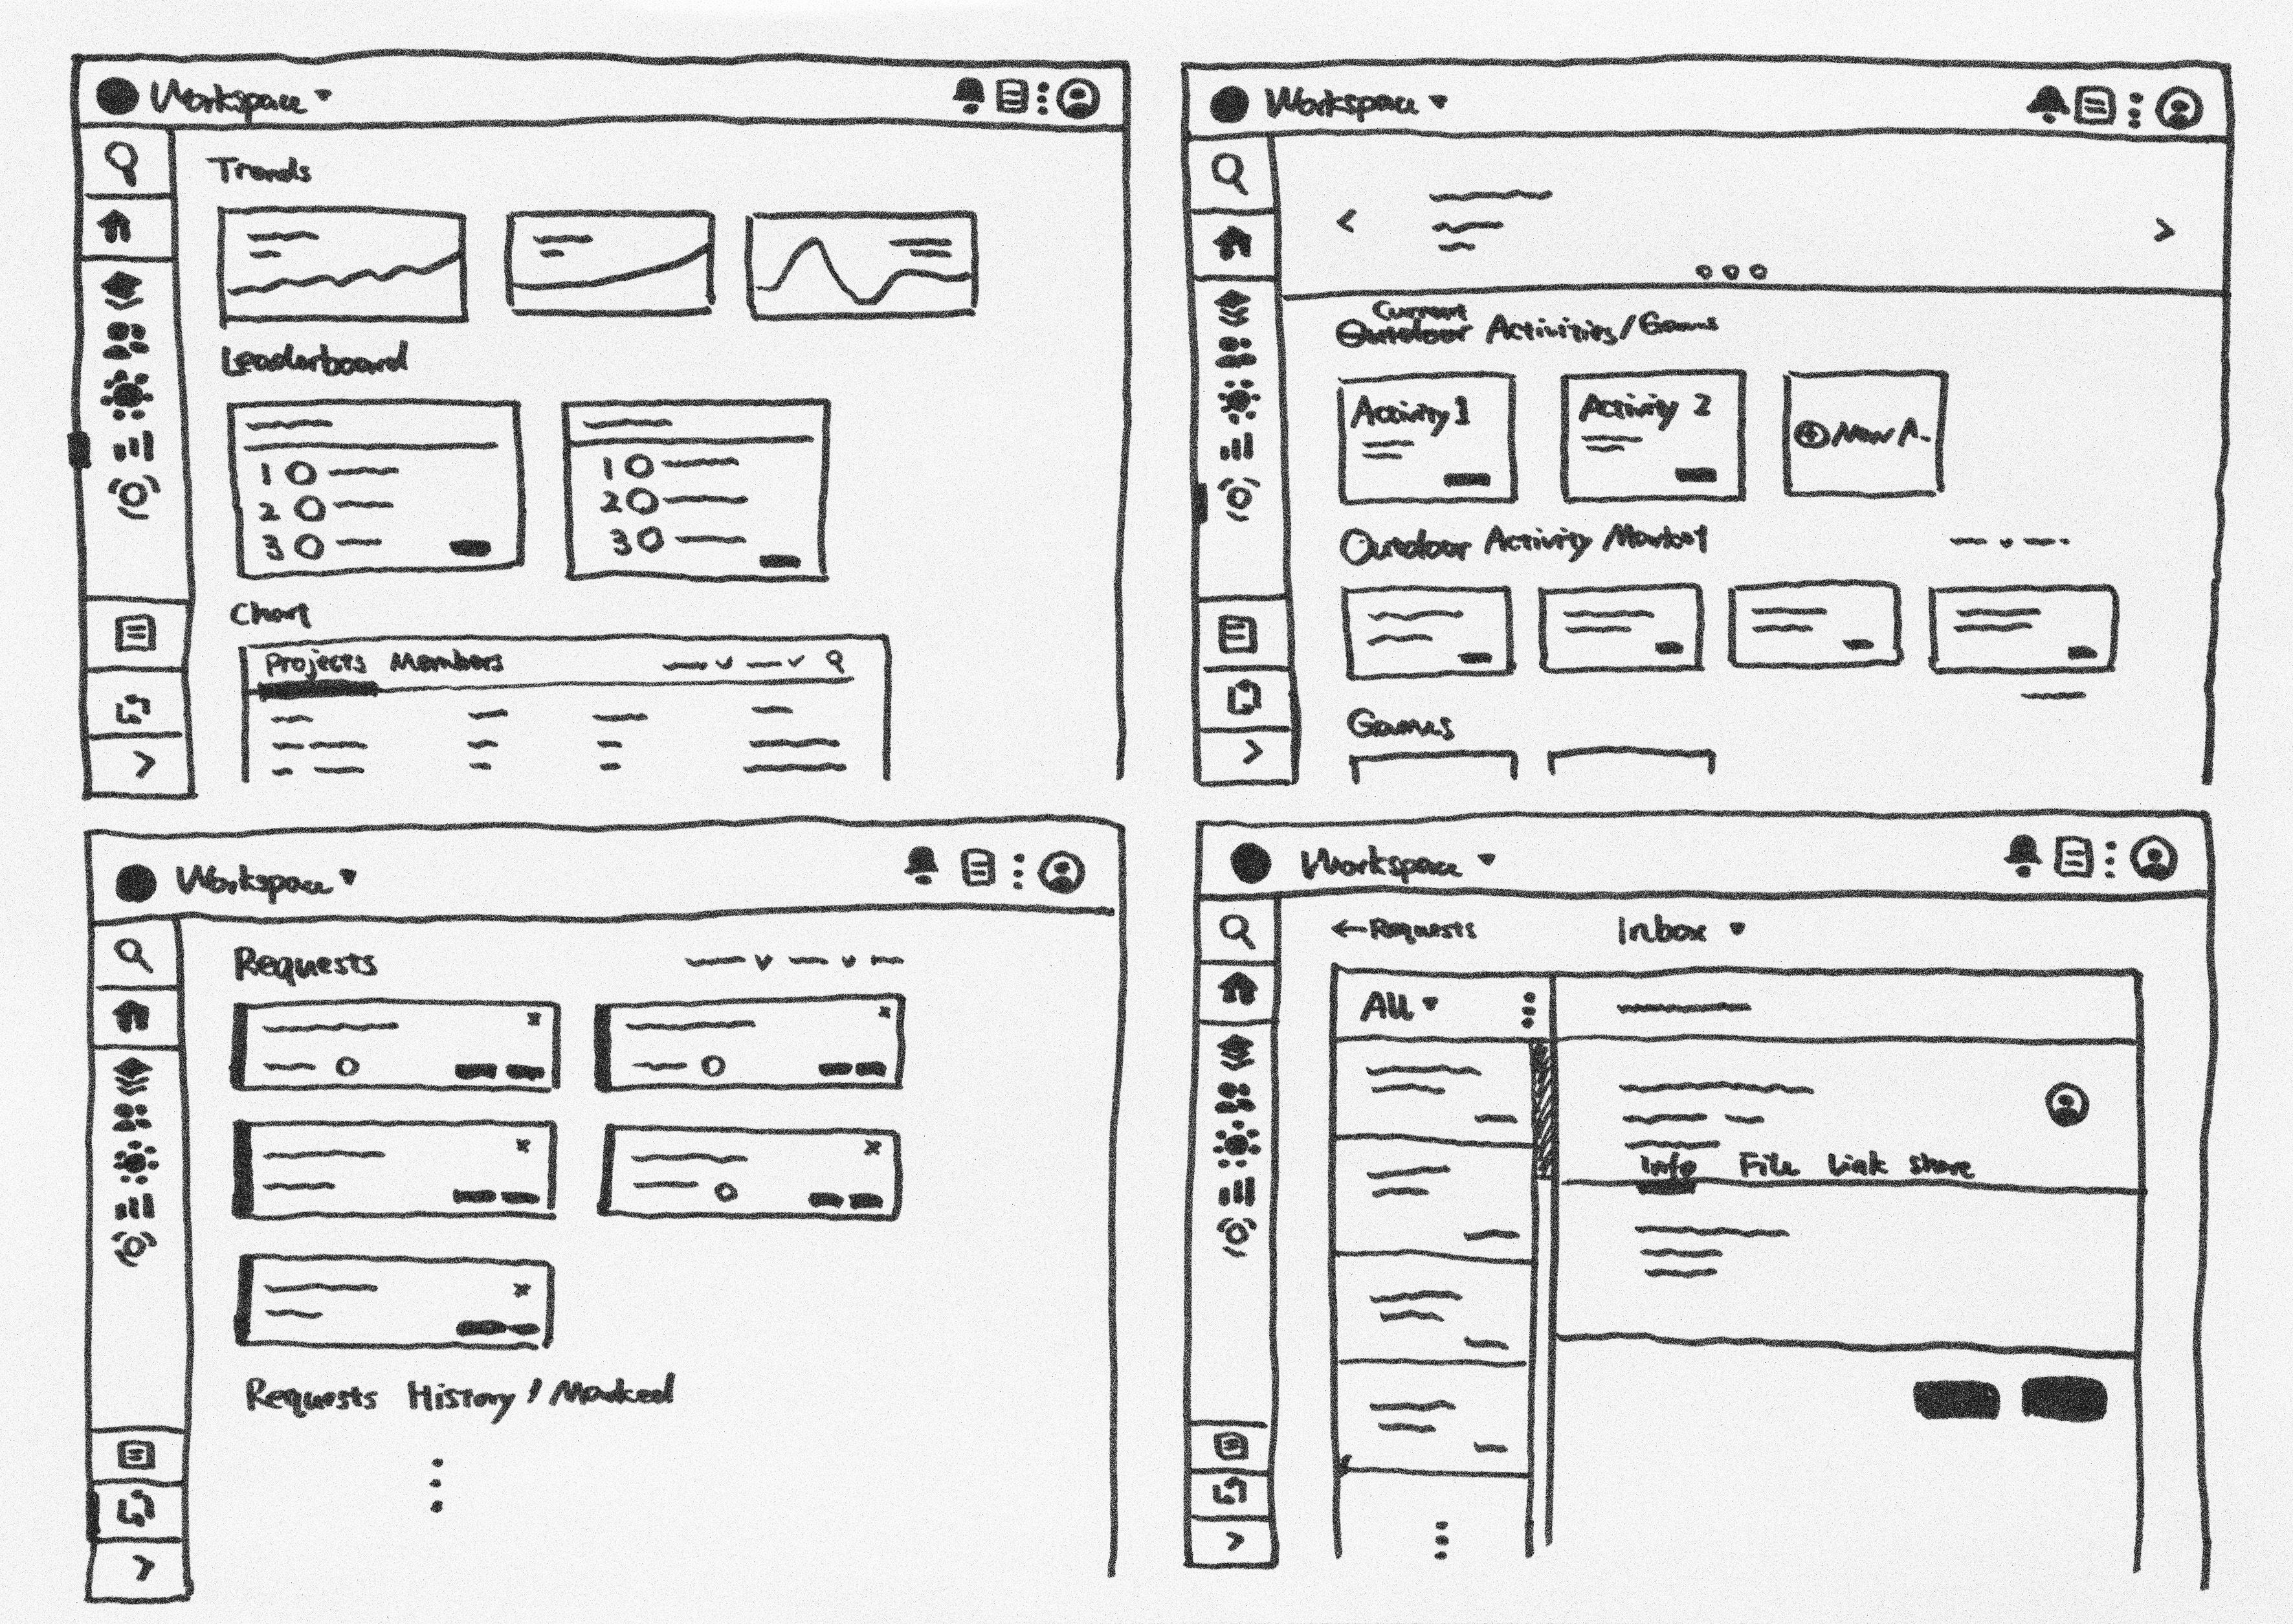 Workspace
Trends
Leaderboard
1
2
3
1
2
3
Chart
Projects Members
Workspace
Current
Outdoor Activities/Games
Activity 1
Activity 2
New A.
Outdoor Activity Market
Games
Workspace
Requests
Requests History / Marked
Workspace
← Requests
Inbox
All
Info File Link Share